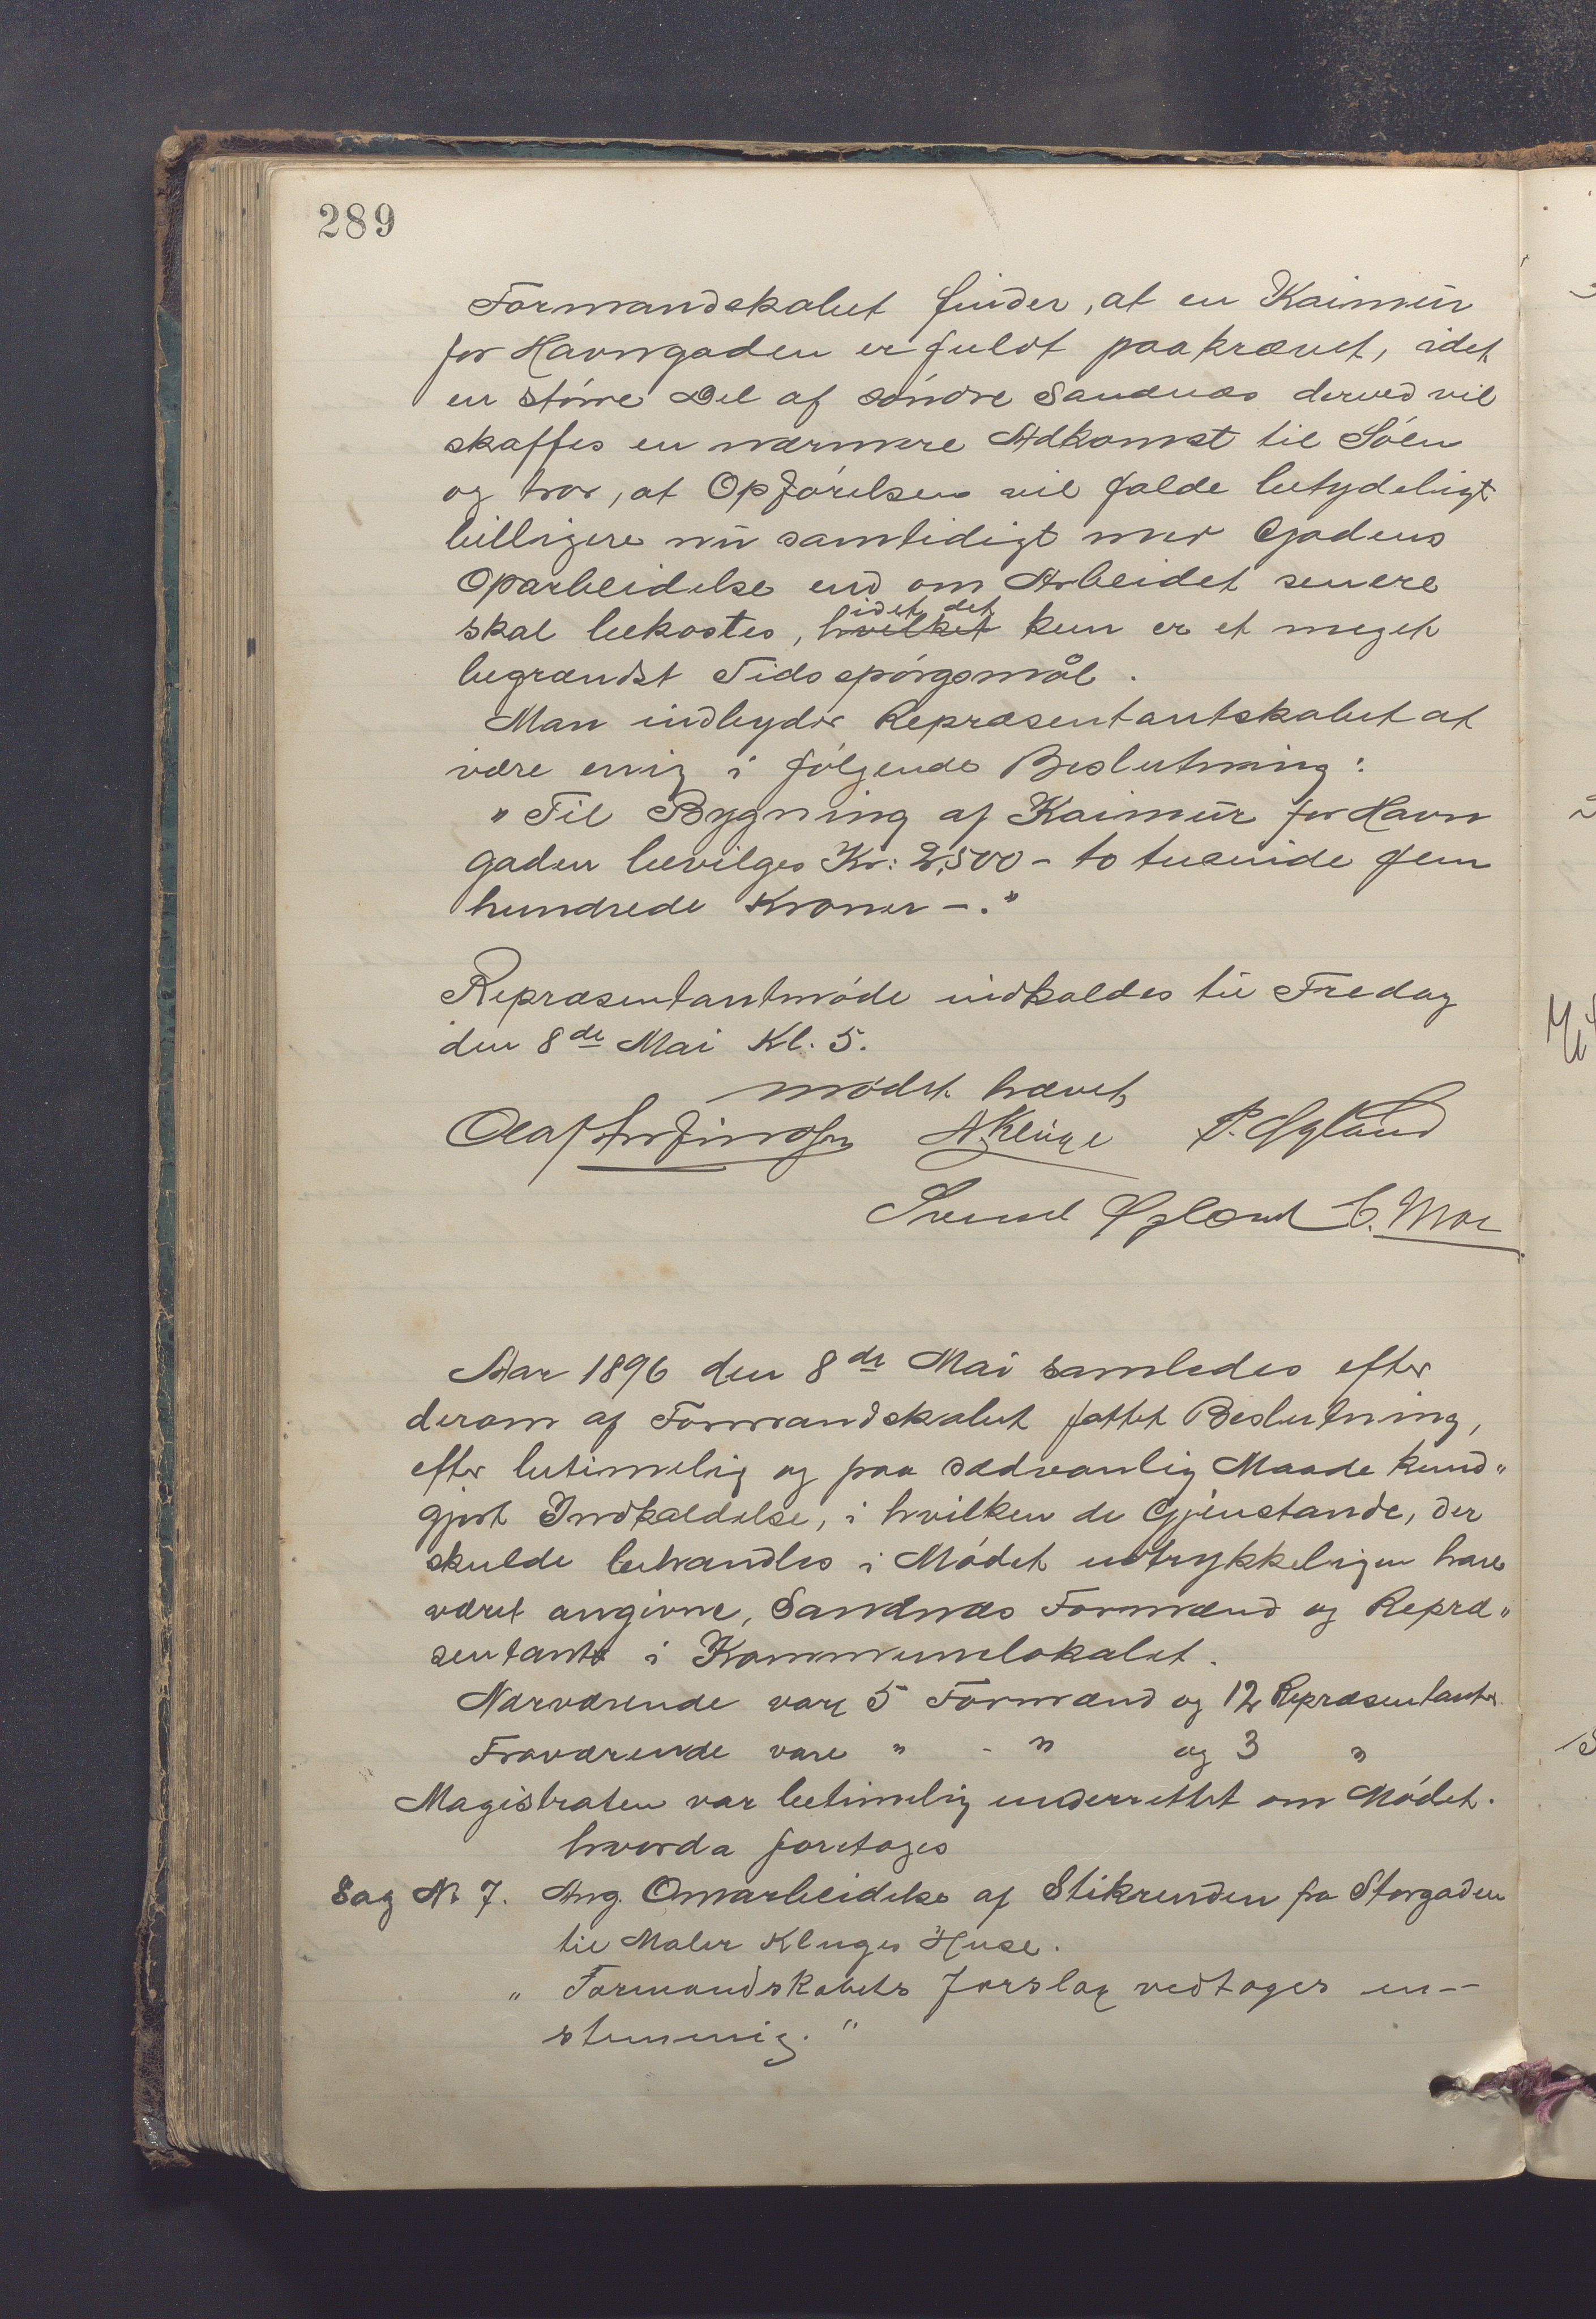 289
Formandskabet finder, at en Kaimur
for Havngaden er fuldt paakrævet, idet
en större Del af söndre Sandnæs derved vil
skaffes en nærmere Adkomst til Söen
og tror, at Opförelsen vil falde betydeligt
billigere nu samtidigt med Gadens
Oparbeidelse end om Arbeidet senere
idet det
skal bekostes, hvilket kun er et meget
begrændst Tidsspörgsmål.
Man indbyder Repræsentantskabet at
være enig i fölgende Beslutning:
"Til Bygning af Kaimur for Havn
gaden bevilges Kr: 2,500 - to tusinde fem
hundrede Kroner -."
Repræsentantmöde indkaldes til Fredag
den 8de Mai Kl. 5.
Mödet hævet
A Kluge P. Ogland
Ogland
Aar 1896 den 8de Mai samledes efter
derom af Formandskabet fattet Beslutning,
efter betimelig og paa sædvanlig Maade kund"
gjort Indkaldelse, i hvilken de Gjenstande, der
skulde behandles i Mödet udtrykkeligen have
været angivne, Sandnæs Formænd og Repræ"
sentant i Kommunelokalet.
Nærværende vare 5 Formænd og 12 Repræsentanter
Fraværende vare " - " og 3 "
Magistraten var betimelig underrettet om Mödet.
hvorda foretages
Sag No 7. Ang. Omarbeidelse af Stikrenden fra Storgaden
til Maler Kluges Huse.
" Formandskabets Forslag vedtages en-
stemmig."